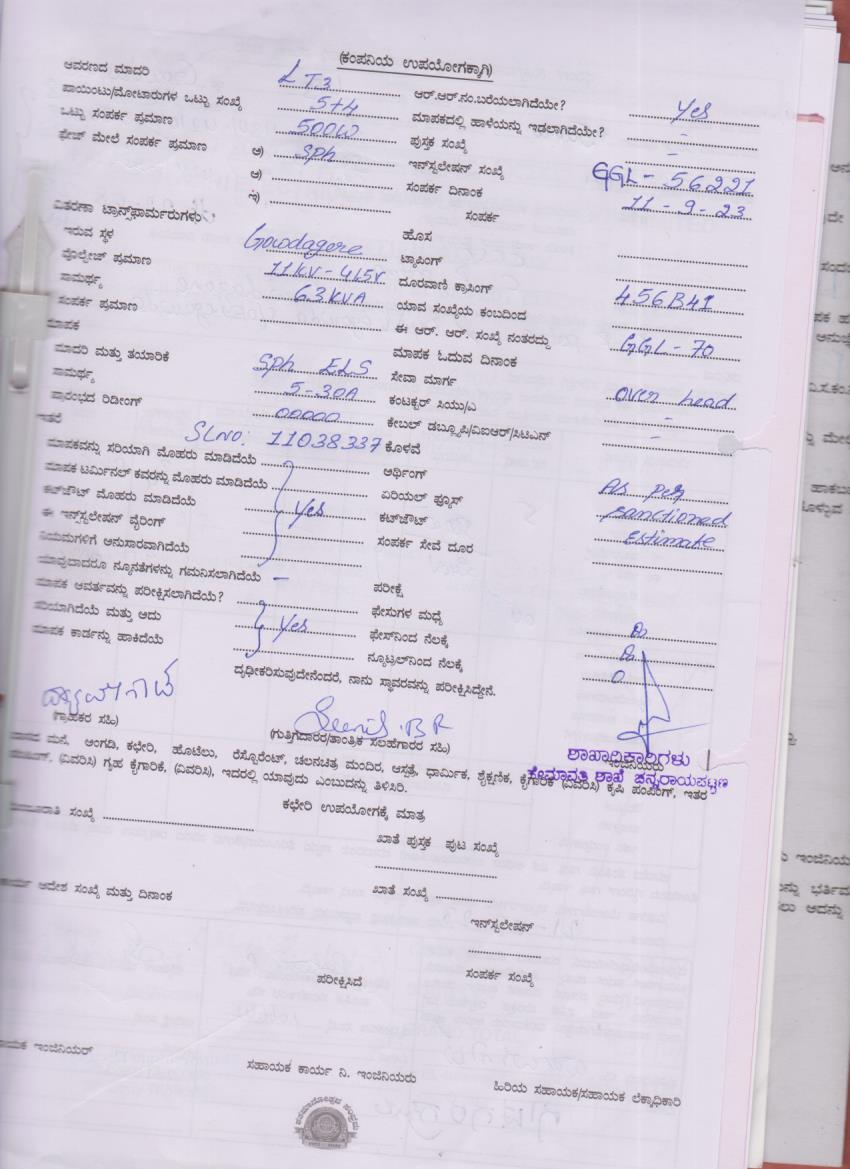 (ಕಂಪನಿಯ ಉಪಯೋಗಕ್ಕಾಗಿ)
ಆವರಣದ ಮಾದರಿ LT3 ಆರ್.ಆರ್.ನಂ.ಬರೆಯಲಾಗಿದೆಯೇ? Yes
ಪಾಯಿಂಟು/ಮೋಟಾರುಗಳ ಒಟ್ಟು ಸಂಖ್ಯೆ 5+4 ಮಾಪಕದಲ್ಲಿ ಹಾಳೆಯನ್ನು ಇಡಲಾಗಿದೆಯೇ? -
ಒಟ್ಟು ಸಂಪರ್ಕ ಪ್ರಮಾಣ 500W ಪುಸ್ತಕ ಸಂಖ್ಯೆ -
ಫೇಜ್ ಮೇಲೆ ಸಂಪರ್ಕ ಪ್ರಮಾಣ ಅ) Sph ಇನ್‌ಸ್ಟಲೇಷನ್ ಸಂಖ್ಯೆ GGL - 56221
ಆ) ಸಂಪರ್ಕ ದಿನಾಂಕ 11 - 9 - 23
ಇ) ಸಂಪರ್ಕ
ವಿತರಣಾ ಟ್ರಾನ್ಸ್‌ಫಾರ್ಮರುಗಳು
ಇರುವ ಸ್ಥಳ Gowdagere ಹೊಸ
ವೊಲ್ಟೇಜ್ ಪ್ರಮಾಣ 11KV - 415V ಟ್ಯಾಪಿಂಗ್
ಸಾಮರ್ಥ್ಯ 63KVA ದೂರವಾಣಿ ಕ್ರಾಸಿಂಗ್
ಸಂಪರ್ಕ ಪ್ರಮಾಣ ಯಾವ ಸಂಖ್ಯೆಯ ಕಂಬದಿಂದ 456B41
ಮಾಪಕ ಈ ಆರ್. ಆರ್. ಸಂಖ್ಯೆ ನಂತರದ್ದು GGL - 70
ಮಾದರಿ ಮತ್ತು ತಯಾರಿಕೆ Sph ELS ಮಾಪಕ ಓದುವ ದಿನಾಂಕ
ಸಾಮರ್ಥ್ಯ 5-30A ಸೇವಾ ಮಾರ್ಗ Over head
ಪ್ರಾರಂಭದ ರಿಡೀಂಗ್ 00000 ಕಂಟಕ್ಟರ್ ಸಿಯು/ಎ -
ಇತರೆ ಕೇಬಲ್ ಡಬ್ಲ್ಯೂಪಿ/ವಿಐಆರ್/ಸಿಟಿಎನ್ -
SLNO: 11038337 ಕೊಳವೆ
ಮಾಪಕವನ್ನು ಸರಿಯಾಗಿ ಮೊಹರು ಮಾಡಿದೆಯೆ ಅರ್ಥಿಂಗ್
ಮಾಪಕ ಟರ್ಮಿನಲ್ ಕವರನ್ನು ಮೊಹರು ಮಾಡಿದೆಯೆ ಏರಿಯಲ್ ಫ್ಯೂಸ್ As per
ಕಟ್‌ಔಟ್ ಮೊಹರು ಮಾಡಿದೆಯೆ Yes ಕಟ್‌ಔಟ್ sanctioned
ಈ ಇನ್‌ಸ್ಟಲೇಷನ್ ವೈರಿಂಗ್ ಸಂಪರ್ಕ ಸೇವೆ ದೂರ Estimate
ನಿಯಮಗಳಿಗೆ ಅನುಸಾರವಾಗಿದೆಯೆ
ಯಾವುದಾದರೂ ನ್ಯೂನತೆಗಳನ್ನು ಗಮನಿಸಲಾಗಿದೆಯೆ - ಪರೀಕ್ಷೆ
ಮಾಪಕ ಆವರ್ತವನ್ನು ಪರೀಕ್ಷಿಸಲಾಗಿದೆಯೆ? ಫೇಸುಗಳ ಮಧ್ಯೆ
ಸರಿಯಾಗಿದೆಯೆ ಮತ್ತು ಅದು Yes ಫೇಸ್‌ನಿಂದ ನೆಲಕ್ಕೆ
ಮಾಪಕ ಕಾರ್ಡನ್ನು ಹಾಕಿದೆಯೆ ನ್ಯೂಟ್ರಲ್‌ನಿಂದ ನೆಲಕ್ಕೆ 0
ದೃಢೀಕರಿಸುವುದೇನೆಂದರೆ, ನಾನು ಸ್ಥಾವರವನ್ನು ಪರೀಕ್ಷಿಸಿದ್ದೇನೆ.
(ಗ್ರಾಹಕರ ಸಹಿ)
(ಗುತ್ತಿಗೆದಾರರ/ತಾಂತ್ರಿಕ ಸಲಹೆಗಾರರ ಸಹಿ)
ಇಂಜಿನಿಯರು
ಶಾಖಾಧಿಕಾರಿಗಳು
ಹೇಮಾವತಿ ಶಾಖೆ ಚನ್ನರಾಯಪಟ್ಟಣ
ಮನೆ, ಅಂಗಡಿ, ಕಛೇರಿ, ಹೊಟೆಲು, ರೆಸ್ಟೊರೆಂಟ್, ಚಲನಚಿತ್ರ ಮಂದಿರ, ಆಸ್ಪತ್ರೆ, ಧಾರ್ಮಿಕ, ಶೈಕ್ಷಣಿಕ, ಕೈಗಾರಿಕೆ (ವಿವರಿಸಿ) ಕೃಷಿ ಪಂಪಿಂಗ್, ಇತರ
(ವಿವರಿಸಿ) ಗೃಹ ಕೈಗಾರಿಕೆ, (ವಿವರಿಸಿ), ಇದರಲ್ಲಿ ಯಾವುದು ಎಂಬುದನ್ನು ತಿಳಿಸಿರಿ.
ಕಛೇರಿ ಉಪಯೋಗಕ್ಕೆ ಮಾತ್ರ
ಸಂಖ್ಯೆ ಖಾತೆ ಪುಸ್ತಕ ಪುಟ ಸಂಖ್ಯೆ
ಆದೇಶ ಸಂಖ್ಯೆ ಮತ್ತು ದಿನಾಂಕ ಖಾತೆ ಸಂಖ್ಯೆ
ಇನ್‌ಸ್ಟಲೇಷನ್
ಪರೀಕ್ಷಿಸಿದೆ ಸಂಪರ್ಕ ಸಂಖ್ಯೆ
ಇಂಜಿನಿಯರ್
ಸಹಾಯಕ ಕಾರ್ಯ ನಿ. ಇಂಜಿನಿಯರು
ಹಿರಿಯ ಸಹಾಯಕ/ಸಹಾಯಕ ಲೆಕ್ಕಾಧಿಕಾರಿ